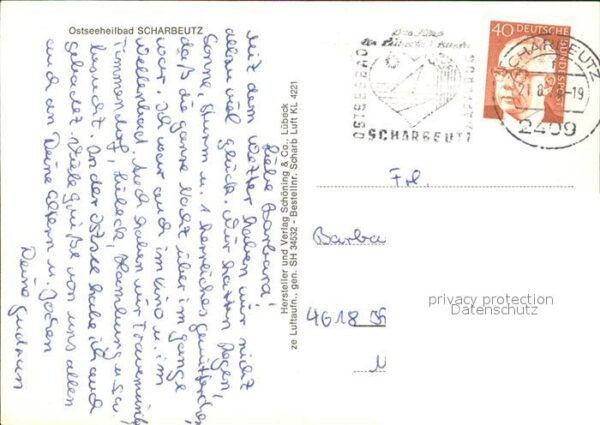 Ostseeheilbad SCHARBEUTZ
Liebe Barbara!
Mit dem Wetter haben wir nicht
allzu viel Glück. Wir hatten Regen,
Sonne, Sturm u. 1 herrliches Gewitter,
daß die ganze Nacht über im Gange
war. Ich war auch im Kino u. im
Wellenbad. Auch haben wir Travemünde,
Timmendorf, Lübeck, Hamburg u.s.w.
besucht. In der Ostsee habe ich auch
gebadet. Viele Grüße von uns allen
auch an Deine Eltern u. Jochen
Deine Gudrun
Hersteller und Verlag Schöning & Co., Lübeck
ze Luftaufn., gen. SH 34532 - Bestellnr. Scharb Luft KL 4221
OSTSEEBAD
SCHARBEUTZ
40 DEUTSCHE
BUNDESPOST
SCHARBEUTZ
21.8. 6-19
2409
Frl.
Barba
4618
privacy protection
Datenschutz